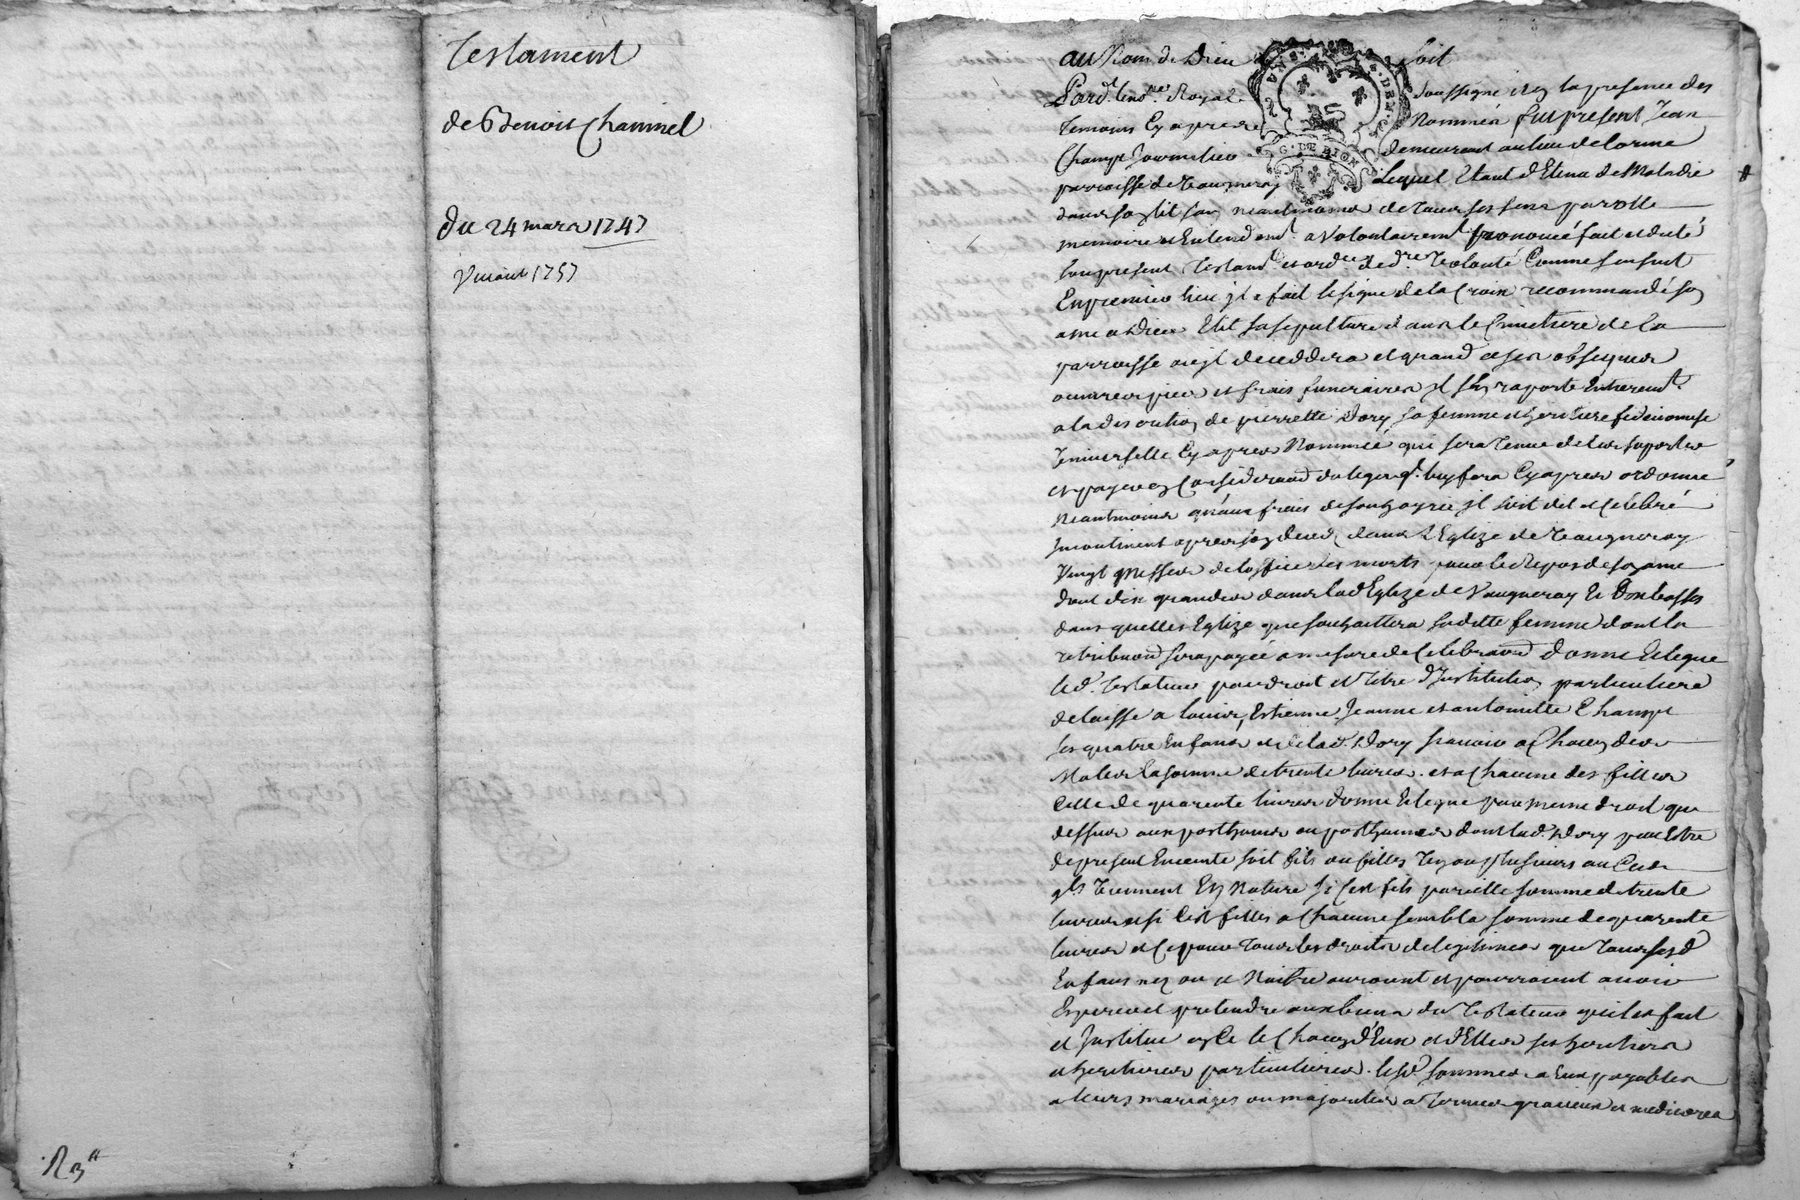 Testament
de Benoit Chammel
Du 24 mars 1747
R 3"
au Nom de Dieu soit
Pard. Royal soussigné et en la presence des
temoins cy apres Nommés fut present Jean
Champt Journalier demeurant au lieu de Lorme
parroisse de Vaugneray Lequel Etant detenu de Maladie
dans son lit sain neantmoins de tous ses sens parolle
memoire et Entendemt. a volontairemt. prononcé fait et dicté
son present Testamt. et ordce. de dre. Volonté Comme sensuit
En premier lieu jl a fait le signe de la Croix recommandé son
ame a Dieu Elit sa sepulture dans le Cimetiere de la
parroisse ou jl deceddera et quand a ses obseques
oeuvres pies et frais funeraires jl sen raporte Entieremt.
a la discretion de pierrette Dory sa femme et heritiere fideicomise
Universelle Cy apres Nommée qui sera tenue de les suporter
et payer en Consideraōn du legs q. luy fera Cy apres ordonne
Neantmoins qu'aux frais de son hoyrie jl soit dit et Celebré
Incontinent apres son deced dans L'Eglize de Vaugneray
Vingt Messes de l'office des morts pour le Repos de son ame
dont dix grandes dans lad. Eglize de Vaugneray Et Dix basses
dans quelles Eglize que souhaittera saditte femme dont la
retribuōn sera payée a mesure de Celebraōn donne Et legue
led. Testateur par droit et titre d'Institution particuliere
delaisse a Louis, Estienne, Jeanne et antoinette Champt
ses quatre Enfans et de lad. Dory scavoir a Chacun des
Males la somme de trente livres et a Chacune des filles
Celle de quarente livres donne Et legue par meme droit que
dessus aux posthumes ou posthumes dont lad. Dory peut Estre
de present Enceinte soit fils ou filles un ou plusieurs au Cas
qls viennent En Nature si C'est fils pareille somme de trente
livres et si C'est filles a Chacune semblable somme de quarente
livres et Ce pour tous les droits de legitimes que tous sesd.
Enfans nez ou a Naitre auroient et pourroient avoir
Esperer et pretendre aux biens du Testateur qui les fait
et Institue en Ce le Chacun d'Eux et d'Elles ses heritiers
et heritieres particulieres lesd. sommes a Eux payables
a leurs mariages ou majorités a termes gracieux et mediocres